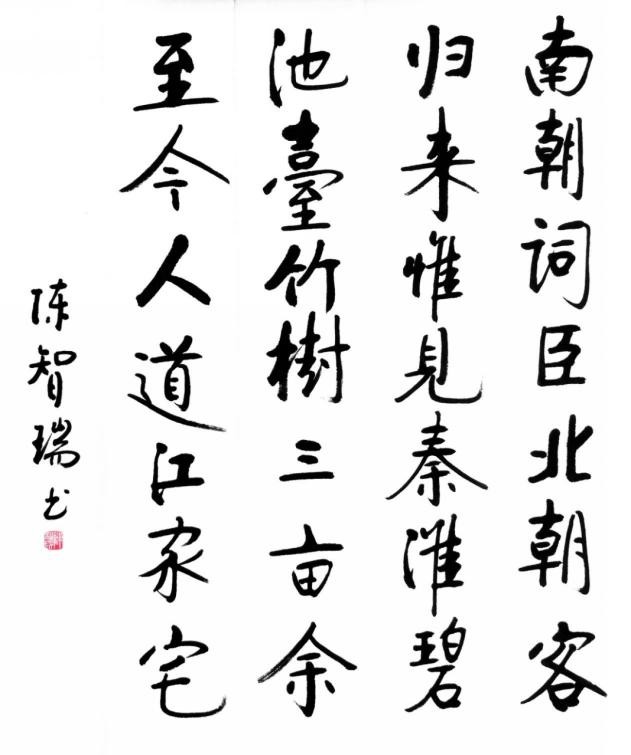 南朝词臣北朝客
归来惟见秦淮碧
池臺竹樹三亩余
至今人道江家宅
陈智瑞书